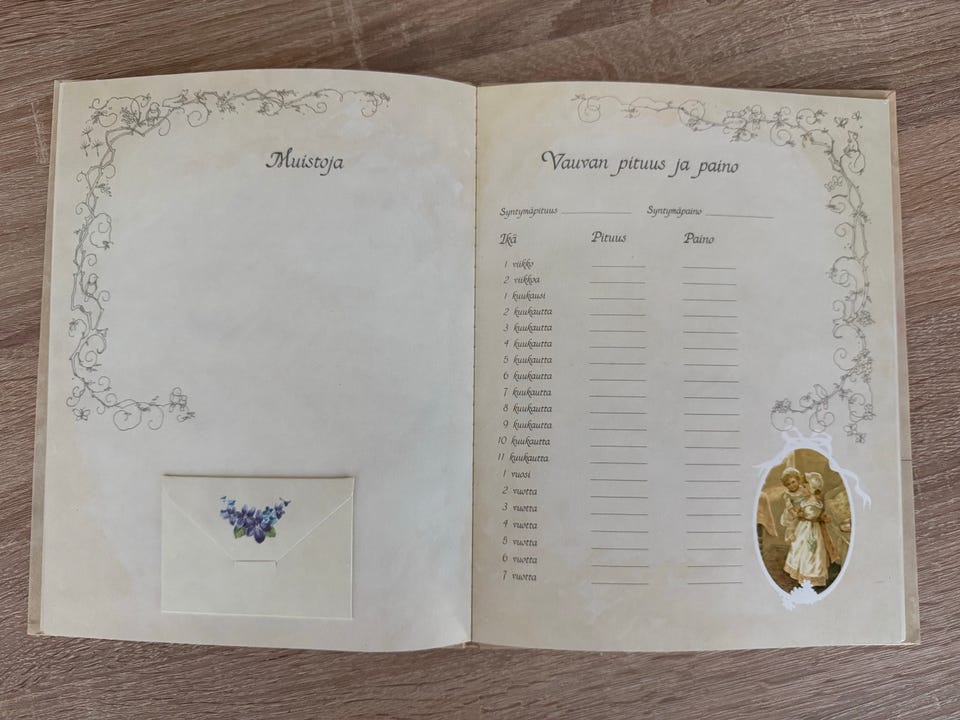 Muistoja
Vauvan pituus ja paino
Syntymäpituus Syntymäpaino
Ikä Pituus Paino
1 viikko
2 viikkoa
1 kuukausi
2 kuukautta
3 kuukautta
4 kuukautta
5 kuukautta
6 kuukautta
7 kuukautta
8 kuukautta
9 kuukautta
10 kuukautta
11 kuukautta
1 vuosi
2 vuotta
3 vuotta
4 vuotta
5 vuotta
6 vuotta
7 vuotta